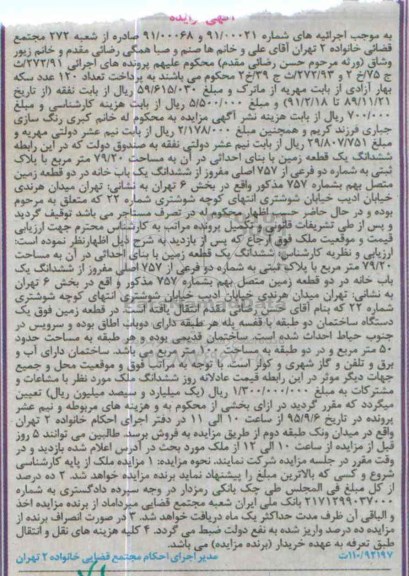 آگهی مزایده
به موجب اجرائیه های شماره ۹۱/۰۰۰۲۱ و ۹۱/۰۰۰۶۸ صادره از شعبه ۲۷۲ مجتمع
قضائی خانواده ۲ تهران آقای علی و خانم ها صنم و صبا همگی رضائی مقدم و خانم زیور
وشاق (ورثه مرحوم حسن رضائی مقدم) محکوم علیهم پرونده های اجرائی ۲۷۲/۹۱/ث
ج ۷۵/خ ۲ و ۲۷۲/۹۳/ث ج ۳۹/خ۲ محکوم می باشند به پرداخت تعداد ۱۲۰ عدد سکه
بهار آزادی از بابت مهریه از ماترک و مبلغ ۵۹/۶۱۵/۰۳۰ ریال از بابت نفقه (از تاریخ
۸۹/۱۱/۲۱ تا ۹۱/۲/۱۸) و مبلغ ۵/۵۰۰/۰۰۰ ریال از بابت هزینه کارشناسی و مبلغ
۷۰۰/۰۰۰ ریال از بابت هزینه نشر آگهی مزایده به محکوم له خانم کبری رنگ سازی
جباری فرزند کریم و همچنین مبلغ ۲/۱۷۸/۰۰۰ ریال از بابت نیم عشر دولتی مهریه و
مبلغ ۲۹/۸۰۷/۷۵۱ ریال از بابت نیم عشر دولتی نفقه به صندوق دولت که در این رابطه
ششدانگ یک قطعه زمین با بنای احداثی در آن به مساحت ۷۹/۲۰ متر مربع با پلاک
ثبتی به شماره دو فرعی از ۷۵۷ اصلی مفروز از ششدانگ یک باب خانه در دو قطعه زمین
متصل بهم بشماره ۷۵۷ مذکور واقع در بخش ۶ تهران به نشانی: تهران میدان هرندی
خیابان ادیب خیابان شوشتری انتهای کوچه شوشتری شماره ۲۲ که متعلق به مرحوم
بوده و در حال حاضر حسب اظهار محکوم له در تصرف مستاجر می باشد توقیف گردید
و پس از طی تشریفات قانونی و تکمیل پرونده مراتب به کارشناس محترم جهت ارزیابی
قیمت و موقعیت ملک فوق ارجاع که پس از بازدید به شرح ذیل اظهارنظر نموده است:
ارزیابی و نظریه کارشناس: ششدانگ یک قطعه زمین با بنای احداثی در آن به مساحت
۷۹/۲۰ متر مربع با پلاک ثبتی به شماره دو فرعی از ۷۵۷ اصلی مفروز از ششدانگ یک
باب خانه در دو قطعه زمین متصل بهم بشماره ۷۵۷ مذکور و اقع در بخش ۶ تهران
به نشانی: تهران میدان هرندی خیابان ادیب خیابان شوشتری انتهای کوچه شوشتری
شماره ۲۲ که بنام آقای حسن رضائی مقدم انتقال یافته است در قطعه زمین فوق یک
دستگاه ساختمان دو طبقه با قفسه پله هر طبقه دارای دوباب اطاق بوده و سرویس در
جنوب حیاط احداث شده است. ساختمان قدیمی بوده و هر طبقه به مساحت حدود
۵۰ متر مربع و در دو طبقه به مساحت ۱۰۰ متر مربع می باشد. ساختمان دارای آب و
برق و تلفن و گاز شهری و کولر است. با توجه به مراتب فوق و موقعیت محل و جمیع
جهات دیگر موثر در این رابطه قیمت عادلانه روز ششدانگ ملک مورد نظر با مشاعات و
مشترکات به مبلغ ۱/۳۰۰/۰۰۰/۰۰۰ ریال (یک میلیارد و سیصد میلیون ریال) تعیین
میگردد که مقرر گردید در ازای بخشی از محکوم به و هزینه های مربوطه و نیم عشر
پرونده در تاریخ ۹۵/۹/۶ از ساعت ۱۰ الی ۱۱ در دفتر اجرای احکام خانواده ۲ تهران
واقع در میدان ونک طبقه دوم از طریق مزایده به فروش برسد. طالبین می توانند ۵ روز
قبل از مزایده از ساعت ۱۰ الی ۱۲ از ملک مورد بحث در آدرس اعلام شده بازدید و در
وقت مقرر در جلسه مزایده شرکت نمایند. نحوه مزایده: ۱ مزایده ملک از پایه کارشناسی
شروع و کسی که بالاترین مبلغ را پیشنهاد نماید برنده مزایده خواهد شد. ۲ ده درصد
از کل مبلغ فی المجلس طی چک بانکی رمزدار در وجه سپرده دادگستری به شماره
۲۱۷۱۲۹۹۰۳۷۰۰۰ بانک ملی ایران شعبه مجتمع قضایی میرداماد از برنده مزایده اخذ
و الباقی آن ظرف مدت حداکثر یک ماه دریافت خواهد شد. ۳ در صورت انصراف برنده از
مزایده ده درصد واریز شده به نفع دولت ضبط می گردد. ۴ کلیه هزینه های نقل و انتقال
طبق تعرفه به عهده خریدار (برنده مزایده) می باشد.
۱۱۰/۹۲۱۹۷/ت
مدیر اجرای احکام مجتمع قضایی خانواده ۲ تهران